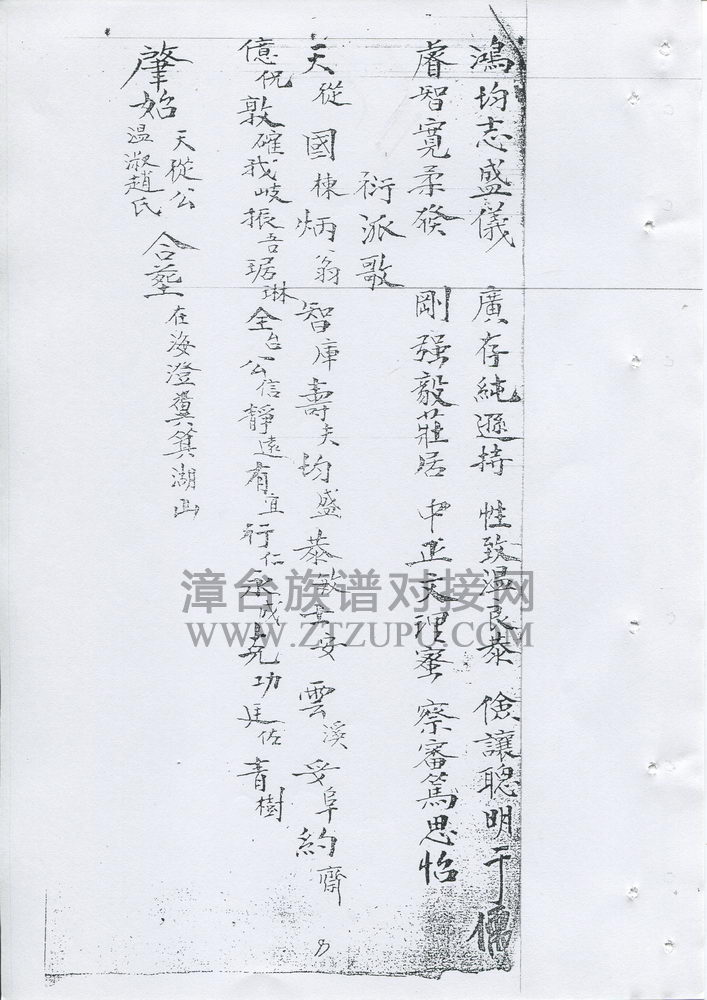 鴻均志盛儀 廣存純遜持 性致溫良恭 儉讓聰明于儒
睿智寬柔發 剛强毅莊居 中正文理蜜 察審篤思怡
衍派歌
天從 國棟 炳翁 智庫 壽夫 均盛 恭敏 其安 雲溪 妥阜 約齋
億侃 敦確 我岐 振吾 琚琳 全台 公信 靜遠 有宜 行仁 永成 堯功 廷佐 青樹
肇始 天從公 温淑趙氏 合塟 在海澄糞箕湖山
漳台族谱对接网
WWW.ZTZUPU.COM
8